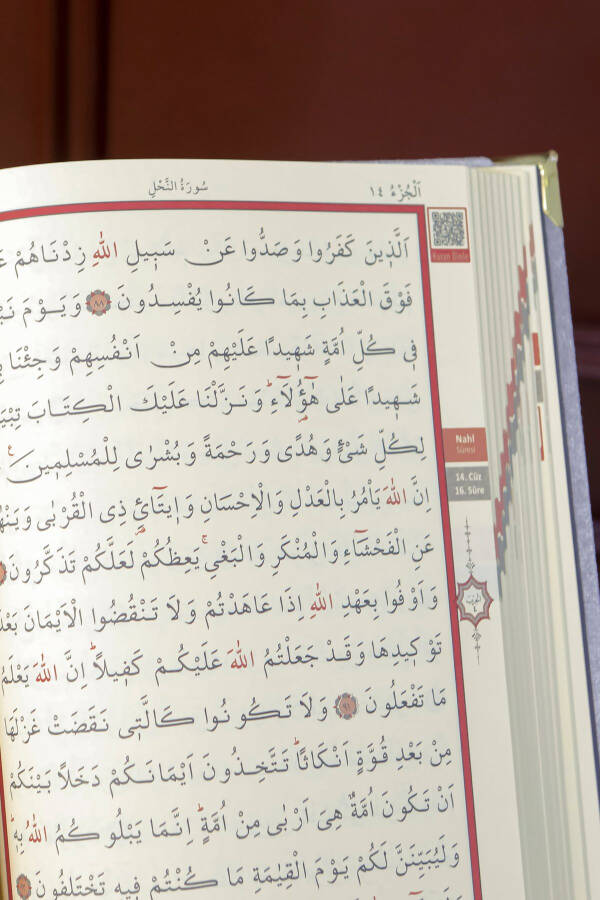 سُورَةُ النَّحْلِ
اَلْجُزْءُ ١٤
اَلَّذ۪ينَ كَفَرُوا وَصَدُّوا عَنْ سَب۪يلِ اللّٰهِ زِدْنَاهُمْ
فَوْقَ الْعَذَابِ بِمَا كَانُوا يُفْسِدُونَ ﴿٨٨﴾ وَيَوْمَ
ف۪ي كُلِّ اُمَّةٍ شَه۪يدًا عَلَيْهِمْ مِنْ اَنْفُسِهِمْ وَجِئْنَا
شَه۪يدًا عَلٰى هٰٓؤُ۬لَٓاءِۜ وَنَزَّلْنَا عَلَيْكَ الْكِتَابَ
لِكُلِّ شَيْءٍ وَهُدًى وَرَحْمَةً وَبُشْرٰى لِلْمُسْلِم۪ينَ۟
اِنَّ اللّٰهَ يَأْمُرُ بِالْعَدْلِ وَالْاِحْسَانِ وَا۪يتَٓائِ ذِي الْقُرْبٰى
عَنِ الْفَحْشَٓاءِ وَالْمُنْكَرِ وَالْبَغْيِۚ يَعِظُكُمْ لَعَلَّكُمْ تَذَكَّرُونَ
وَاَوْفُوا بِعَهْدِ اللّٰهِ اِذَا عَاهَدْتُمْ وَلَا تَنْقُضُوا الْاَيْمَانَ
تَوْك۪يدِهَا وَقَدْ جَعَلْتُمُ اللّٰهَ عَلَيْكُمْ كَف۪يلًاۜ اِنَّ اللّٰهَ يَعْلَمُ
مَا تَفْعَلُونَ ﴿٩١﴾ وَلَا تَكُونُوا كَالَّت۪ي نَقَضَتْ غَزْلَهَا
مِنْ بَعْدِ قُوَّةٍ اَنْكَاثًاۜ تَتَّخِذُونَ اَيْمَانَكُمْ دَخَلًا بَيْنَكُمْ
اَنْ تَكُونَ اُمَّةٌ هِيَ اَرْبٰى مِنْ اُمَّةٍۜ اِنَّمَا يَبْلُوكُمُ اللّٰهُ بِه۪ۜ
وَلَيُبَيِّنَنَّ لَكُمْ يَوْمَ الْقِيٰمَةِ مَا كُنْتُمْ ف۪يهِ تَخْتَلِفُونَ
Kuran Dinle
Nahl
Sûresi
14. Cüz
16. Sûre